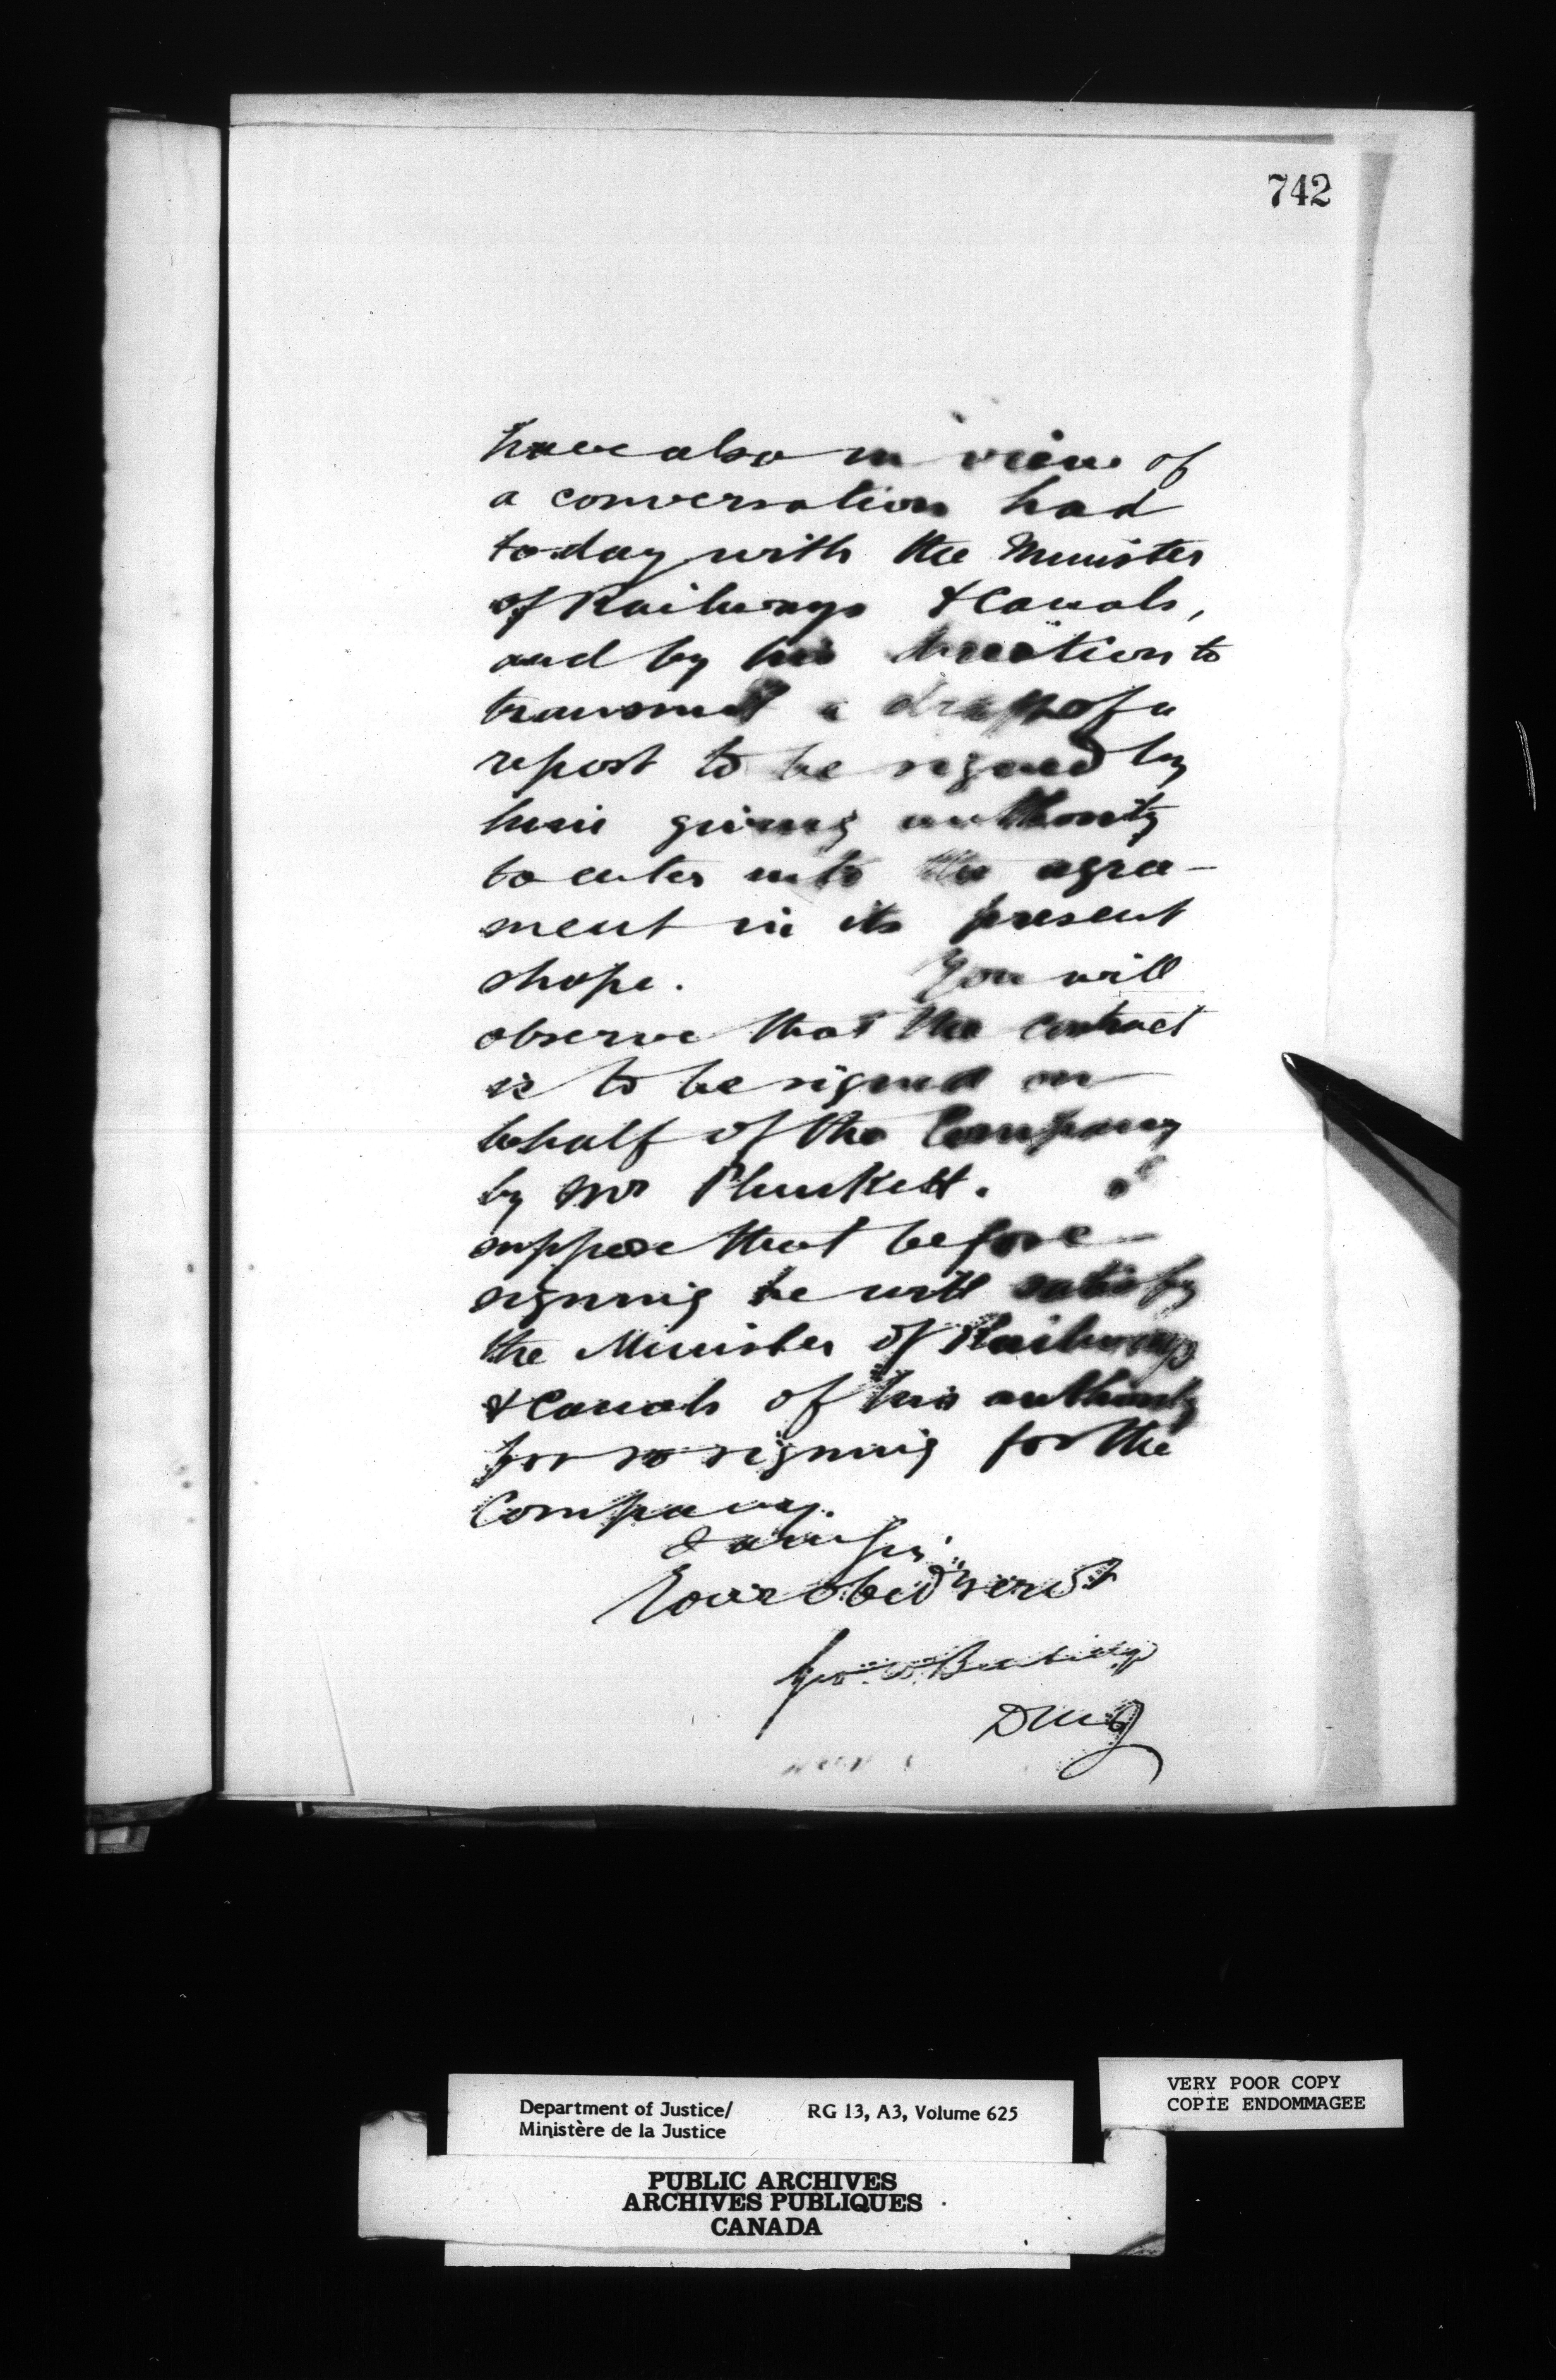 742
have also in view of
a conversation had
to-day with the Minister
of Railways & Canals,
and by his direction to
transmit a draft of a
report to be signed by
him giving authority
to enter into the agree-
ment in its present
shape. You will
observe that the contract
is to be signed on
behalf of the Company
by Mr Plunkett. I
suppose that before
signing he will satisfy
the Minister of Railways
& Canals of his authority
for so signing for the
Company.
I am Sir
Your obed servt
Geo. W. Burbidge
DMJ
VERY POOR COPY
COPIE ENDOMMAGEE
Department of Justice/ RG 13, A3, Volume 625
Ministère de la Justice
PUBLIC ARCHIVES
ARCHIVES PUBLIQUES
CANADA